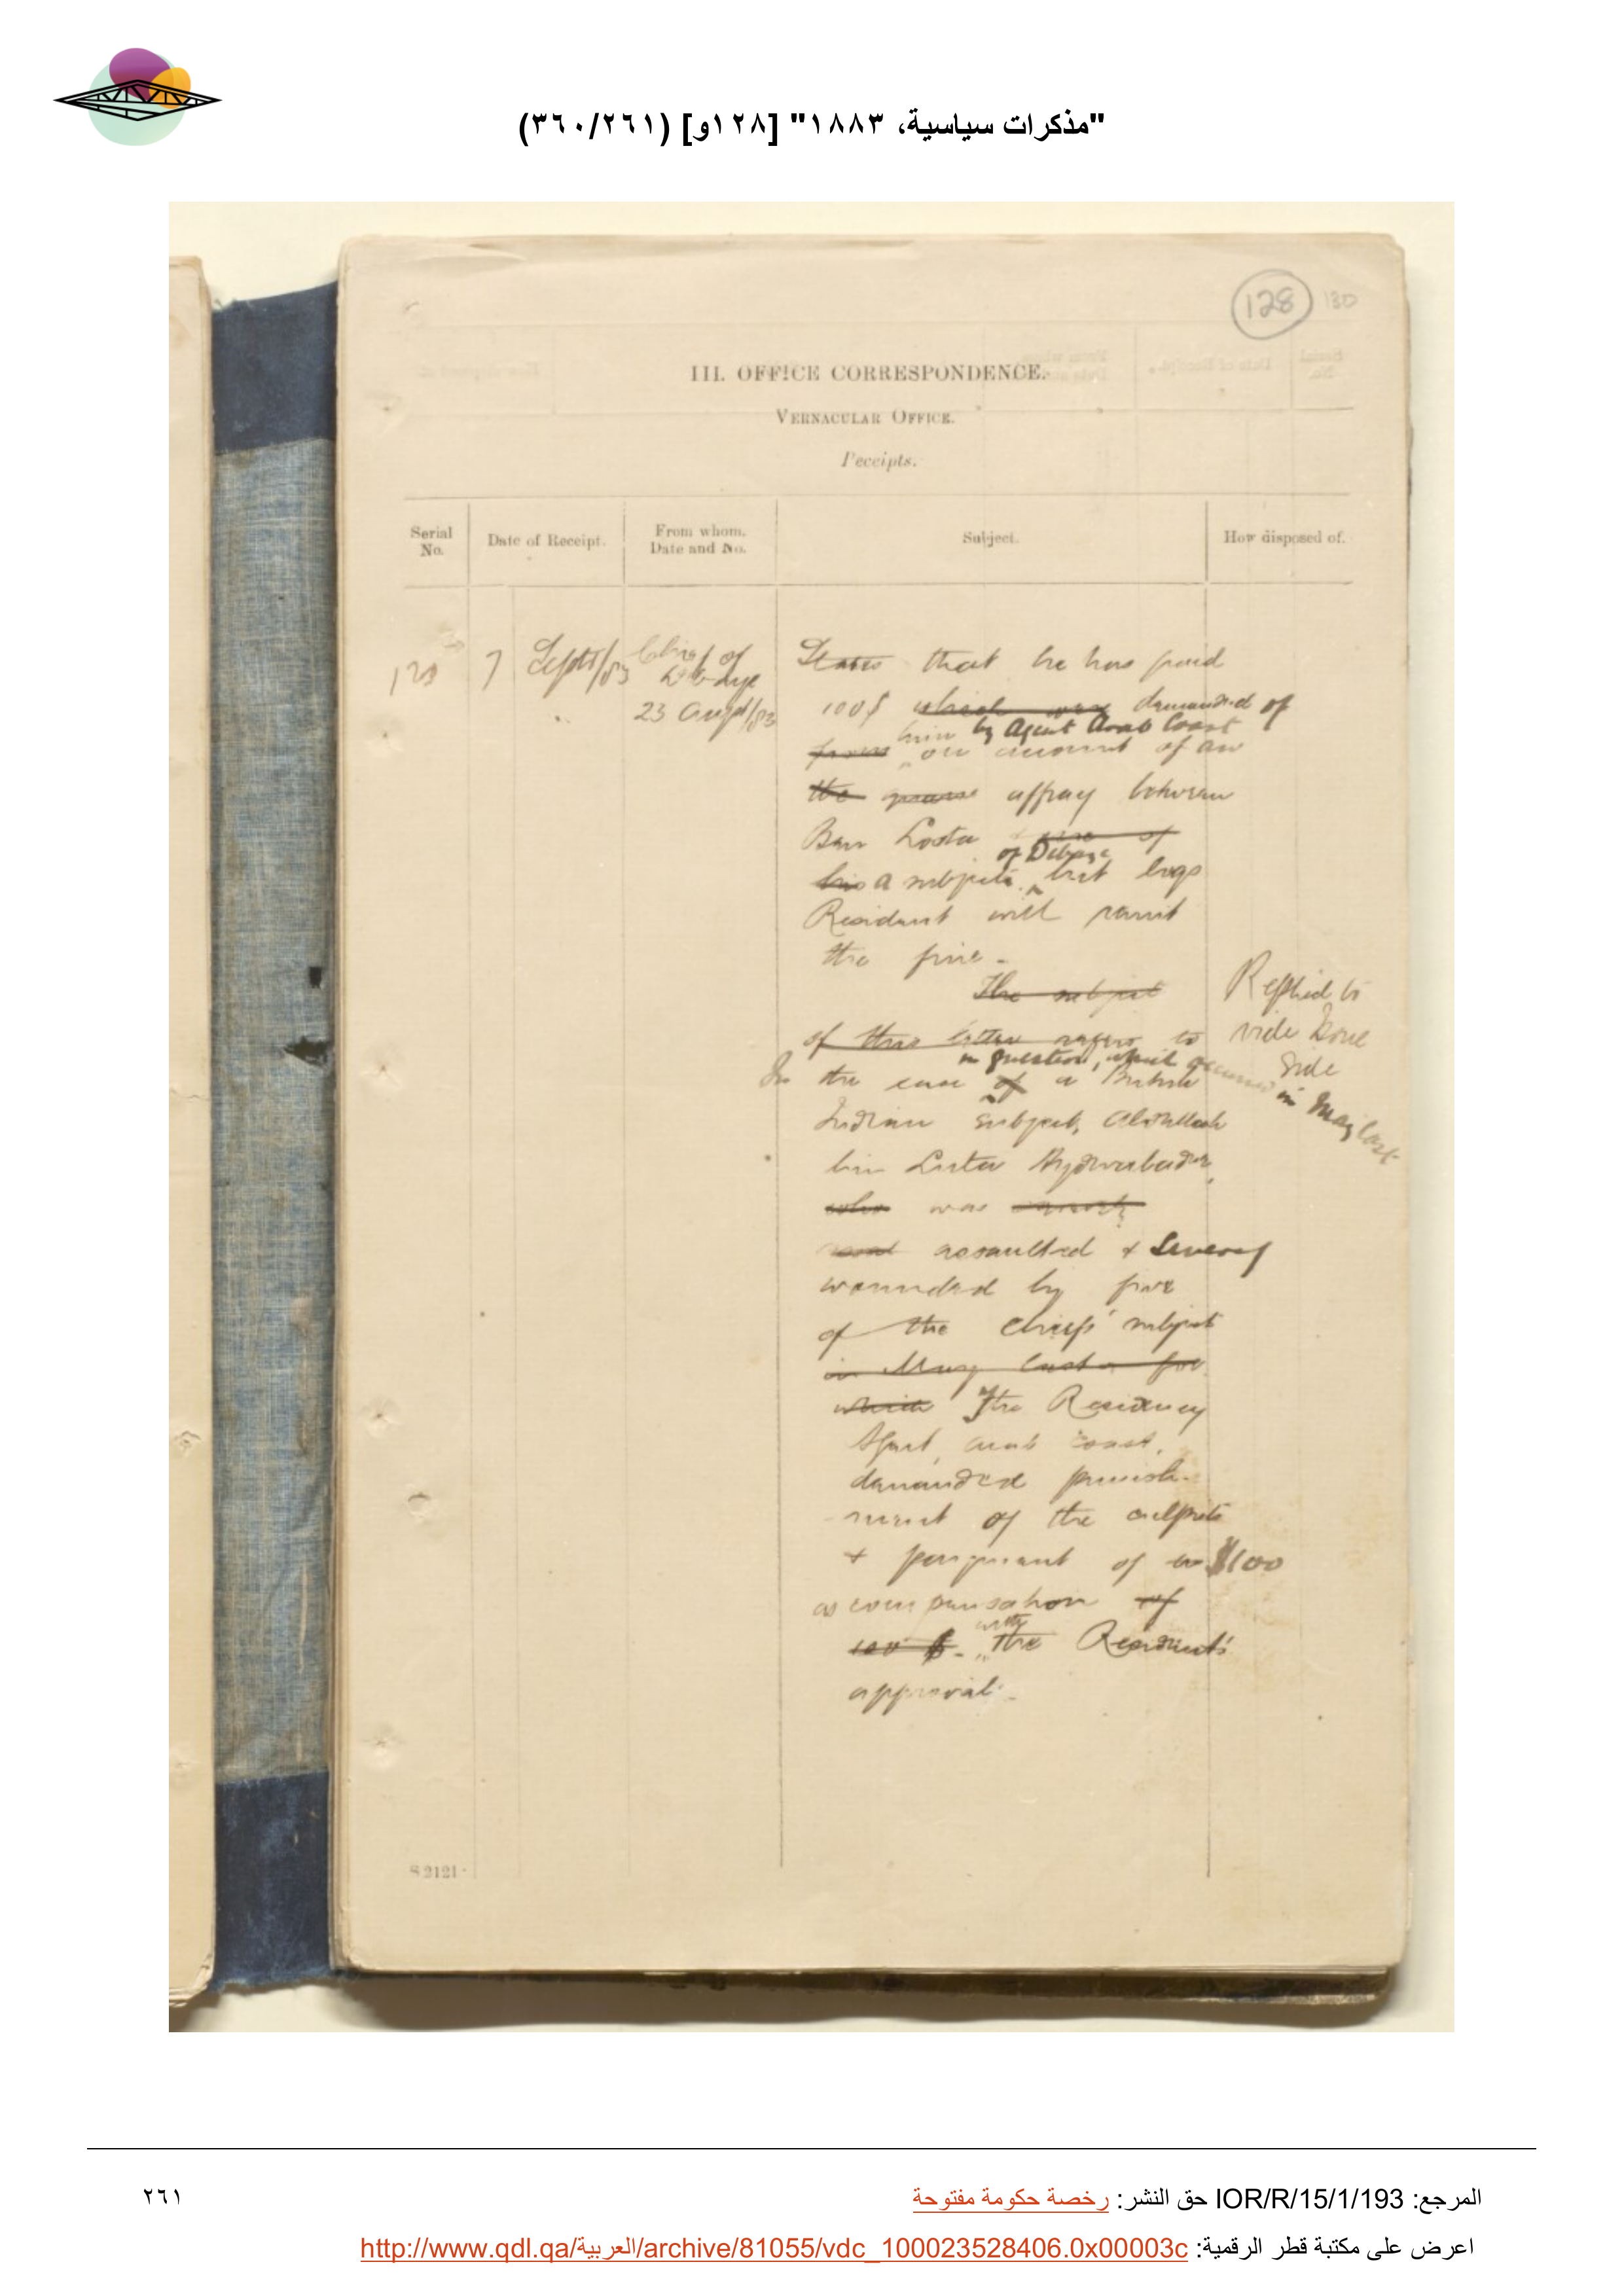 "مذكرات سياسية، ١٨٨٣" [١٢٨و] (٣٦٠/٢٦١)
128 130
III. OFFICE CORRESPONDENCE.
VERNACULAR OFFICE.
Receipts.
Serial No.
Date of Receipt.
From whom. Date and No.
Subject.
How disposed of.
7 Sept/83
Chief of
Debaye
23 Augst/83
States that he has paid
100$ which was demanded of
him by Agent Arab Coast
from on account of an
the affray between
Ban Loota & one of
of Debaye
his a subjects, but begs
Resident will remit
the fine -
The subject
of this letter refers to
in question, which occurred in May last
In the case of a British
Indian subject, Abdullah
bin Luta Hyderabader,
who was
assaulted & severely
wounded by five
of the Chiefs' subjects
in May last & for
which The Residency
Agent, Arab Coast,
demanded punish-
ment of the culprits
+ payment of $100
as compensation of
100 $. with the Resident's
approval -
Replied to
vide Issue
Side
S 2121
المرجع: IOR/R/15/1/193 حق النشر: رخصة حكومة مفتوحة
٢٦١
اعرض على مكتبة قطر الرقمية: http://www.qdl.qa/العربية/archive/81055/vdc_100023528406.0x00003c